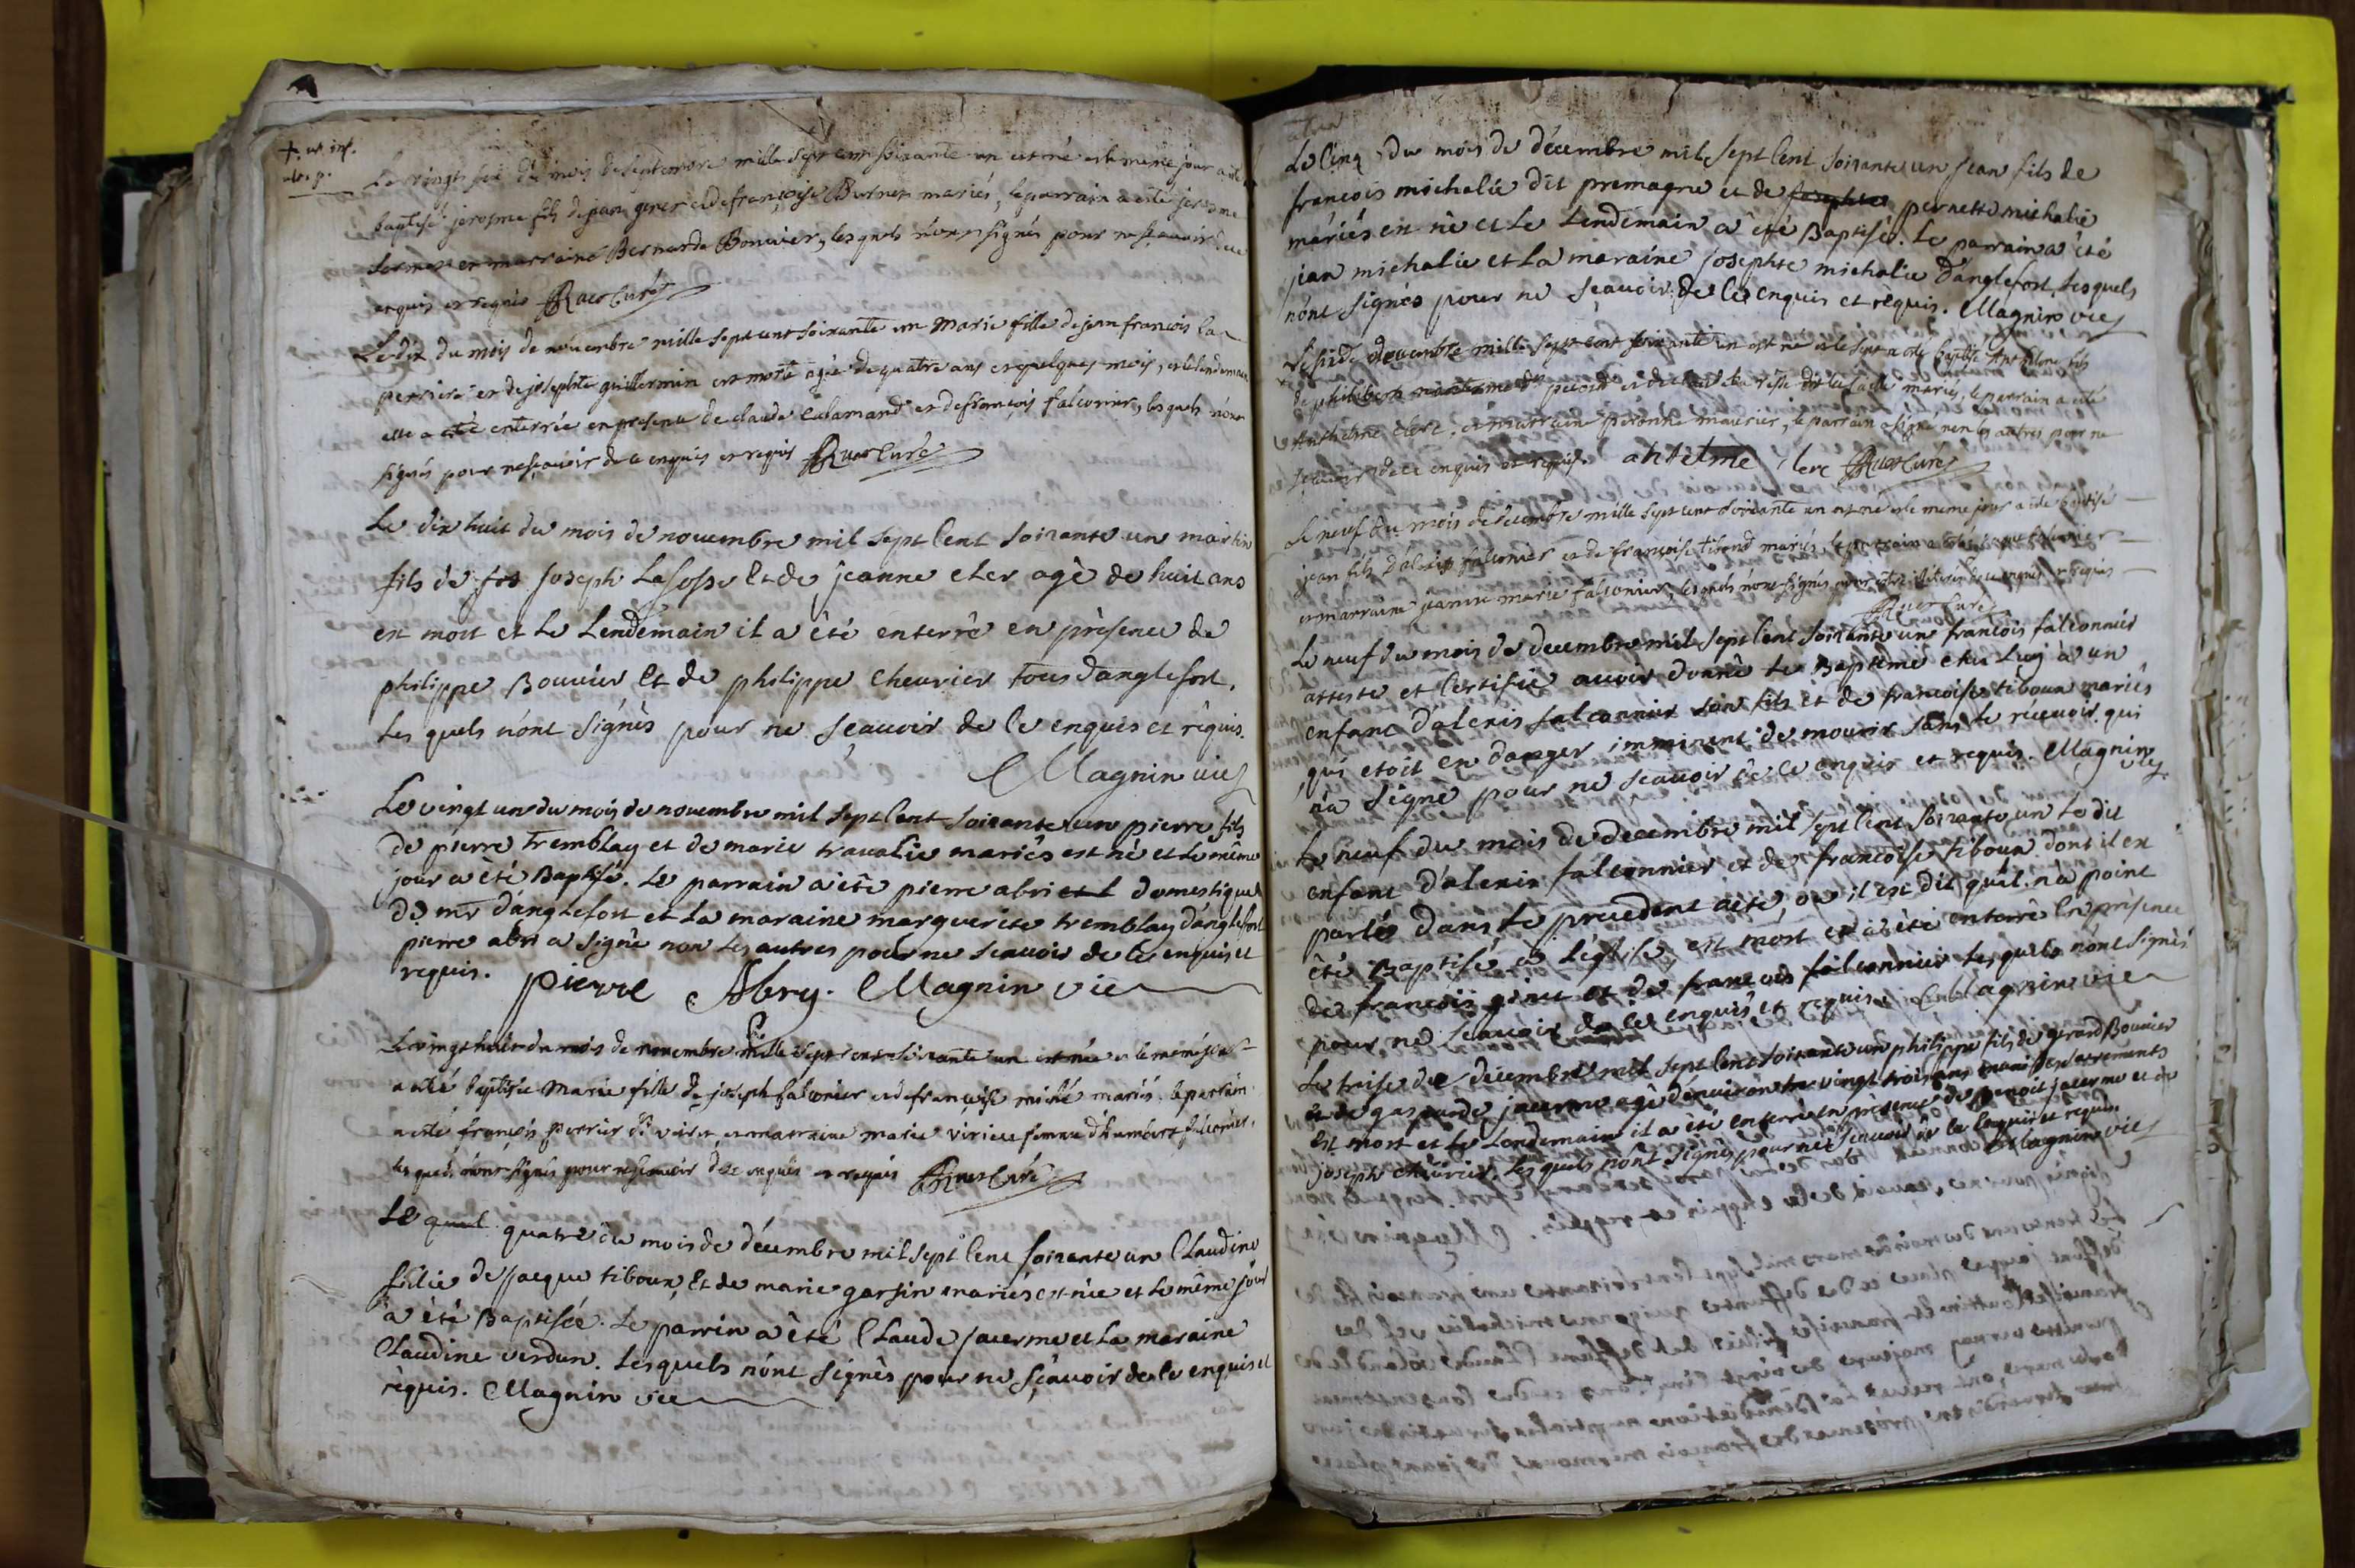 +. ut. inf.
Le vingt six du mois de septembre mille sept cent soixante un est né et le meme jour a été
baptisé jerosme fils de jean gener et de françoise Burner mariés, le parrain a été jerosme
et marraine Bernarde Bouvier, lesquels n'ont signés pour ne scavoir de ce
enquis et requis Curé
Le dix du mois de novembre mille sept cent soixante un Marie fille de jean francois la
perrire et de josephte guillermin est morte agée de quatre ans et quelques mois, et le lendemain
elle a eté enterrée en presence de claude Calamand et de françois falconier, lesquels n'ont
signés pour ne scavoir de ce enquis et requis Curé
Le dix huit du mois de novembre mil sept Cent soixante un martin
fils de joseph La fosse Et de jeanne cler agé de huit ans
est mort et Le Lendemain il a êté enterré en présence de
philippe Bouvier Et de philippe Chevrier tous d'anglefort.
Les quels n'ont signés pour ne sçauoir de Ce enquis et réquis.
Magnin vic
Le vingt un du mois de novembre mil sept Cent soixante un pierre fils
de pierre tremblay et de marie travalie mariés est né et Le même
jour a été Baptisé. Le parrain a êté pierre abri domestique
de mr d'anglefort et La maraine marguerite tremblay d'anglefort
pierre abri a signé non Les autres pour ne scauoir de Ce enquis et
requis. pierre Abry. Magnin vic
Le vingt huit du mois de novembre mille sept cent soixante un est née et le meme jour
a eté baptisée Marie fille de joseph falconier et de françoise miché mariés. le parrain
a eté françois perrier et marraine marie virieu femme d'humbert falconier,
lesquels n'ont signés pour ne scavoir de ce enquis et requis Curé
Le quatre du mois de décembre mil sept Cent soixante un Claudine
fillie de jacque tiboux, Et de marie garsin mariés est née et Le même jour
a été Baptisée. Le parrin a été Claude jacerme et La maraine
Claudine verdun. Lesquels n'ont signés pour ne sçavoir de Ce enquis et
réquis. Magnin vic
Le Cinq du mois de décembre mil sept Cent soixante un jean fils de
francois michalie dit premagne et de pernette michalie
mariés en né et Le Lendemain a été Baptisé. Le parrain a été
jean michalie et La maraine josephte michalie d'anglefort, Lesquels
n'ont signés pour ne sçauoir de Ce enquis et requis. Magnin vic
Le six de decembre mille sept cent soixante un est né et le sept a eté baptisé Anthelme fils
de philibert et de mariés, le parrain a eté
Anthelme clerc, et marraine peronne mauvier, le parrain a signé non les autres pour ne
scavoir de ce enquis et requis. anthelme clerc Curé
Le neuf du mois de decembre mille sept cent soixante un est né et le meme jour a eté baptisé
jean fils d'alexis falconier et de françoise tiboud mariés, le parrain a eté falconier
et marraine jeanne marie falconier, lesquels n'ont signés pour estre illiterés de ce enquis et requis
Curé
Le neuf du mois de decembre mil sept Cent soixante un francois falconnier
atteste et Certifie auoir donné Le Baptême chez Luy a un
enfant d'alexis falconnier son fils et de francoise tiboux mariés
qui etoit en danger imminent de mourir sans Le réceuoir. qui
n'a signé pour ne scauoir de Ce enquis et requis. Magnin vic
Le neuf du mois de decembre mil sept Cent soixante un Le dit
enfant d'alexis falconnier et de francoise tiboux dont il est
parlés dans Le precedent acte, ou il est dit qu'il n'a point
êté Baptisé à L'eglise, est mort et a êté enterré En présence
de francois ginet et de francois falconnier Lesquels n'ont signés
pour ne scauoir de Ce enquis et requis. Magnin vic
Le treise de décembre mil sept Cent soixante un philippe fils de gerard Bouvier
et de gasparde jacerme agé d'environ vingt trois ans muni des sacrements
est mort et Le Lendemain il a êté enterré en présence de Benoit jacerme et de
joseph chevrier. Les quels n'ont signés pour ne scauoir de Ce Enquis et requis.
Magnin vic